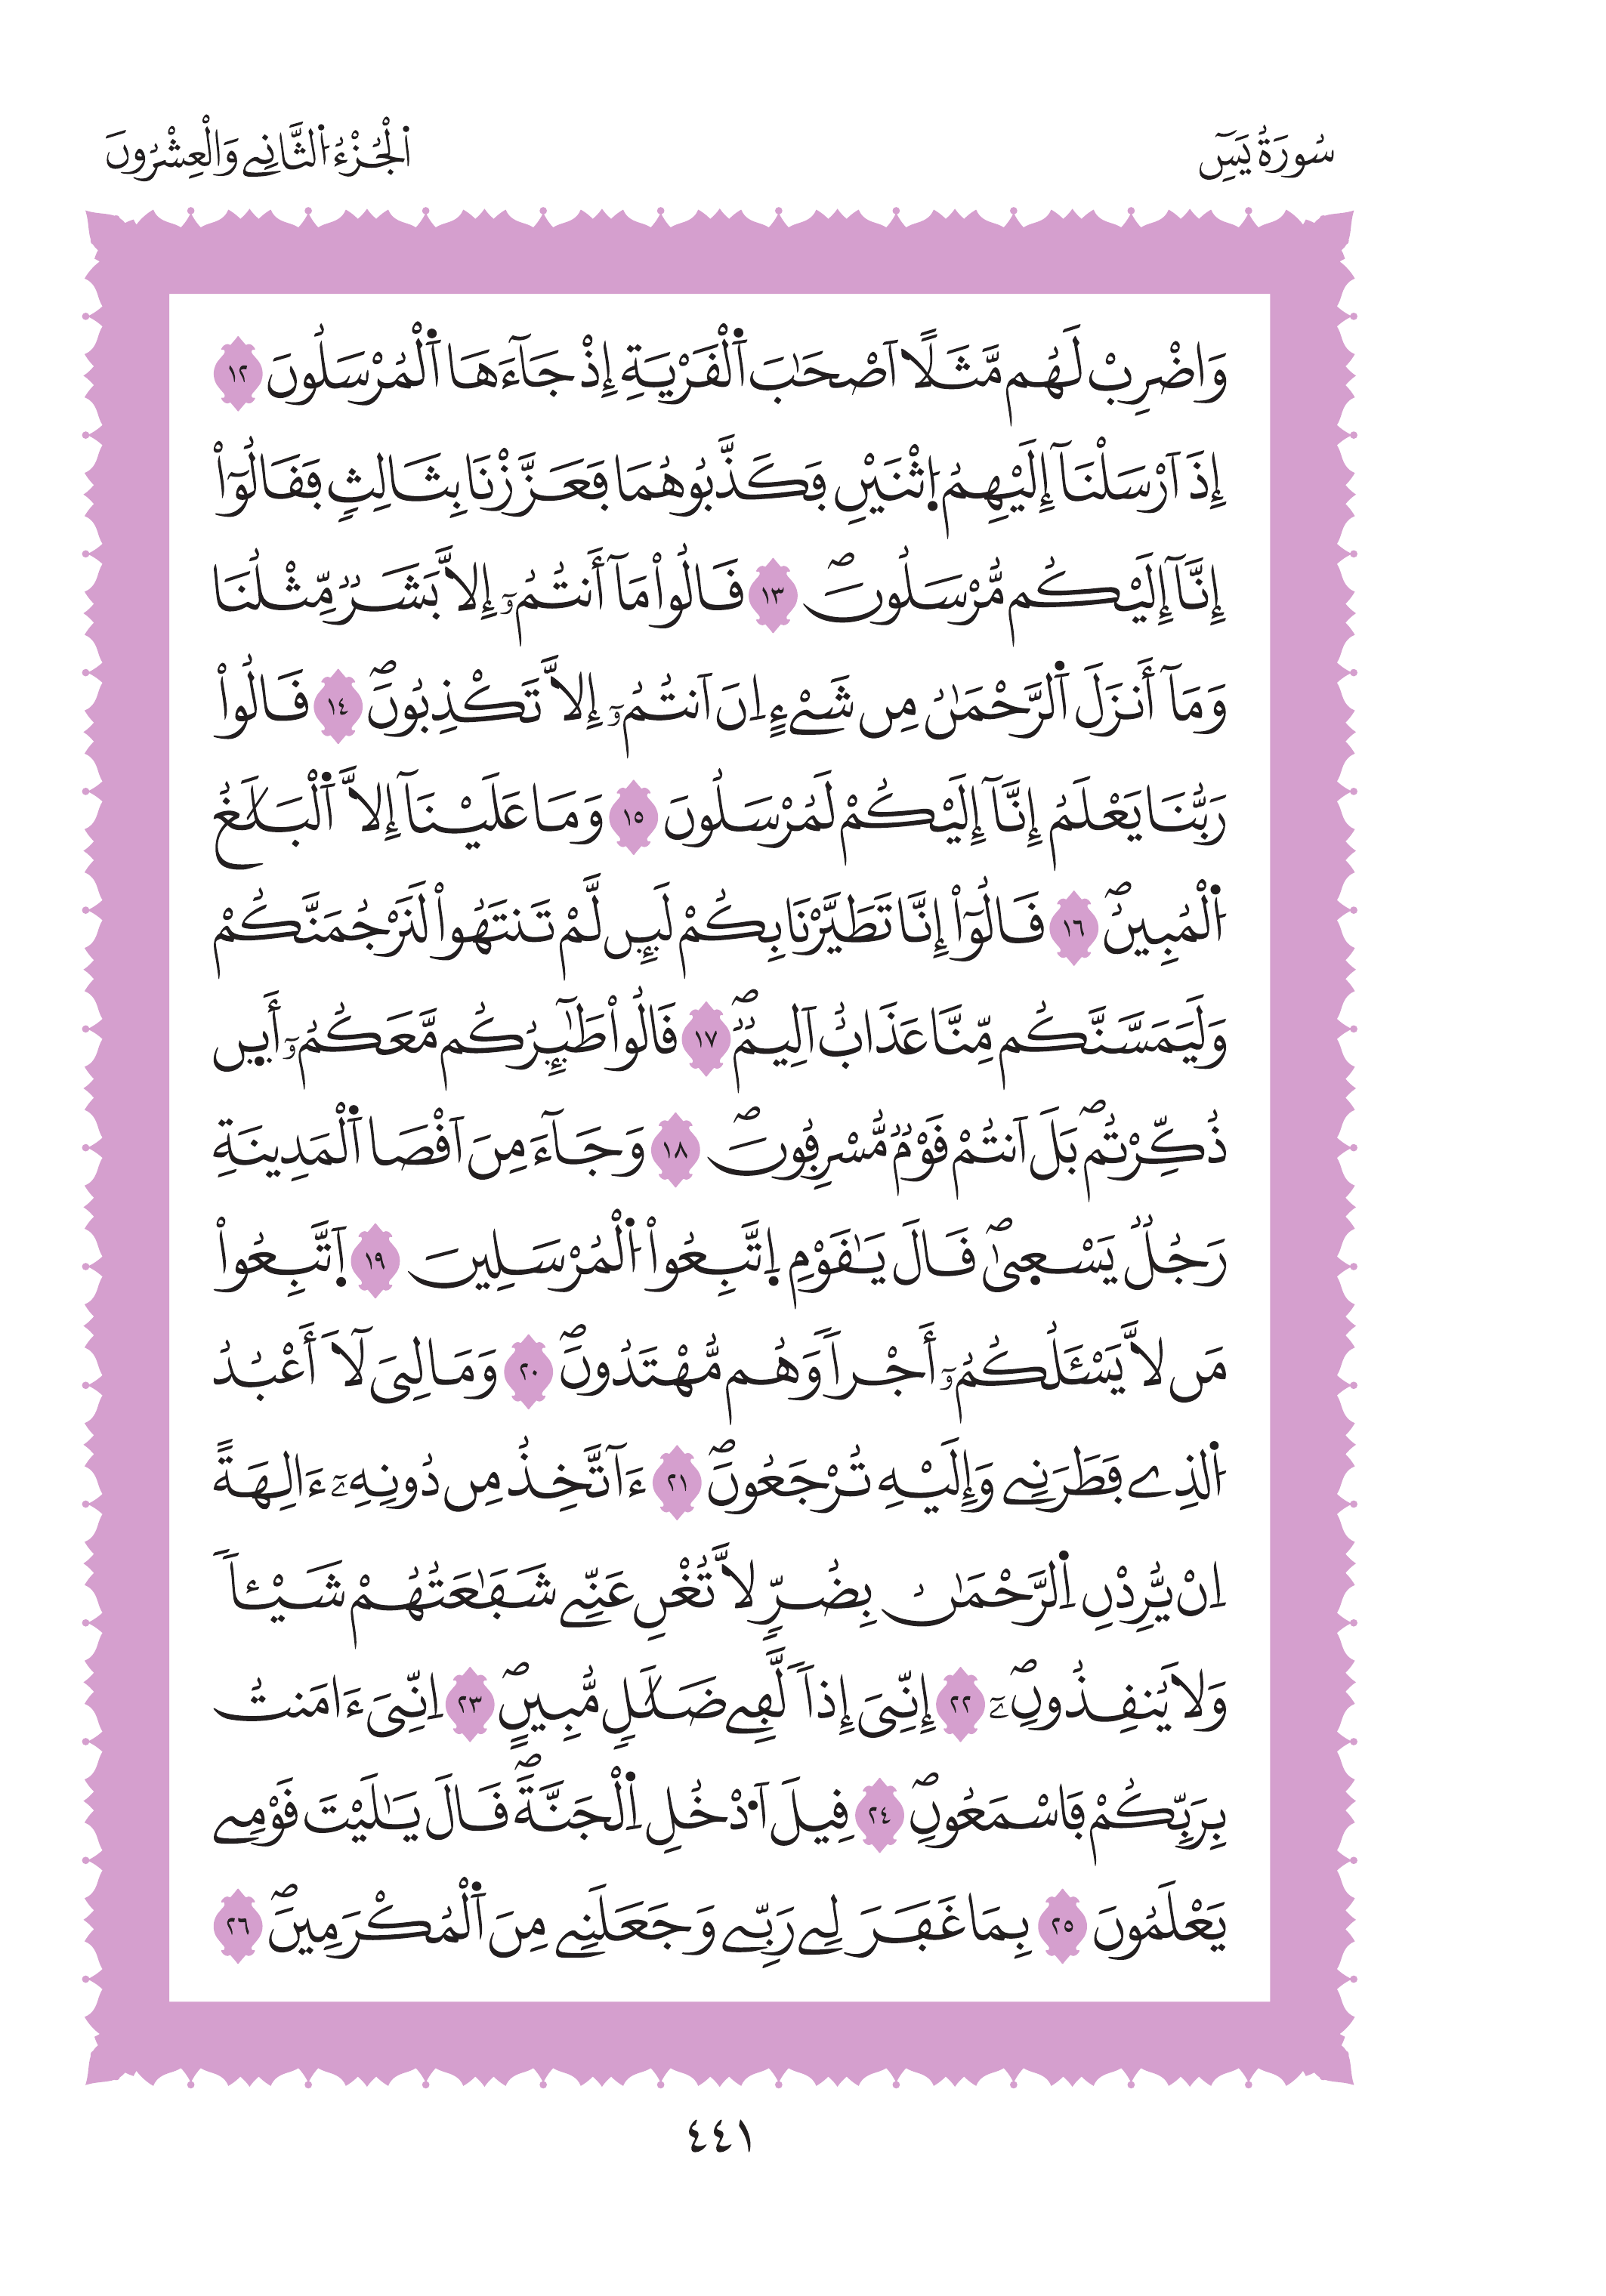 سُورَةُ يَسِٓ
اَ۬لْجُزْءُ اُ۬لثَّانِے وَالْعِشْرُونَ
وَاضْرِبْ لَهُم مَّثَلًا اَصْحَٰبَ اَ۬لْقَرْيَةِ إِذْ جَآءَهَا اَ۬لْمُرْسَلُونَ ١٢
إِذَ اَرْسَلْنَآ إِلَيْهِمُ اُ۪ثْنَيْنِ فَكَذَّبُوهُمَا فَعَزَّزْنَا بِثَالِثٖ فَقَالُوٓاْ
إِنَّآ إِلَيْكُم مُّرْسَلُونَۖ ١٣ قَالُواْ مَآ أَنتُمُۥٓ إِلاَّ بَشَرٞ مِّثْلُنَا
وَمَآ أَنزَلَ اَ۬لرَّحْمَٰنُ مِن شَےْءٍ اِنَ اَنتُمُۥٓ إِلاَّ تَكْذِبُونَۖ ١٤ قَالُواْ
رَبُّنَا يَعْلَمُ إِنَّآ إِلَيْكُمْ لَمُرْسَلُونَ ١٥ وَمَا عَلَيْنَآ إِلاَّ اَ۬لْبَلَٰغُ
اُ۬لْمُبِينُۖ ١٦ قَالُوٓاْ إِنَّا تَطَيَّرْنَا بِكُمْ لَئِن لَّمْ تَنتَهُواْ لَنَرْجُمَنَّكُمْ
وَلَيَمَسَّنَّكُم مِّنَّا عَذَابٌ اَلِيمٞۖ ١٧ قَالُواْ طَٰٓئِرُكُم مَّعَكُمُۥٓ أَيِن
ذُكِّرْتُمۖ بَلَ اَنتُمْ قَوْمٞ مُّسْرِفُونَۖ ١٨ وَجَآءَ مِنَ اَقْصَا اَ۬لْمَدِينَةِ
رَجُلٞ يَسْع۪يٰۖ قَالَ يَٰقَوْمِ اِ۪تَّبِعُواْ اُ۬لْمُرْسَلِينَ ١٩ اَ۪تَّبِعُواْ
مَن لاَّ يَسْـَٔلُكُمُۥٓ أَجْراٗ وَهُم مُّهْتَدُونَۖ ٢٠ وَمَا لِيَ لَآ أَعْبُدُ
اُ۬لذِے فَطَرَنِے وَإِلَيْهِ تُرْجَعُونَۖ ٢١ ءَآتَّخِذُ مِن دُونِهِۦٓ ءَالِهَةً
اِنْ يُّرِدْنِ اِ۬لرَّحْمَٰنُ بِضُرّٖ لاَّ تُغْنِ عَنِّے شَفَٰعَتُهُمْ شَيْـٔاٗ
وَلاَ يُنقِذُونِۦٓۖ ٢٢ إِنِّيَ إِذاٗ لَّفِے ضَلَٰلٖ مُّبِينٍۖ ٢٣ اِنِّيَ ءَامَنتُ
بِرَبِّكُمْ فَاسْمَعُونِۖ ٢٤ قِيلَ اَ۟دْخُلِ اِ۬لْجَنَّةَۖ قَالَ يَٰلَيْتَ قَوْمِے
يَعْلَمُونَ ٢٥ بِمَا غَفَرَ لِے رَبِّے وَجَعَلَنِے مِنَ اَ۬لْمُكْرَمِينَۖ ٢٦
٤٤١